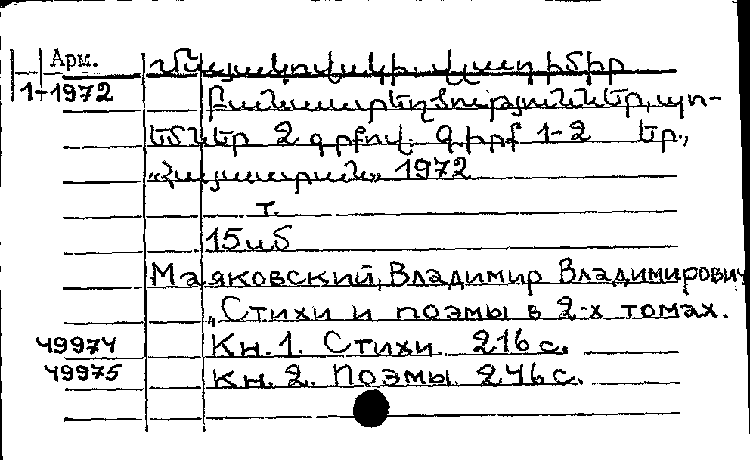 Арм. Մայակովսկի, Վլադիմիր
1-1972 Բանաստեղծություններ, պո-
եմներ 2 գրքով. Գիրք 1-2 Եր.,
«Հայաստան» 1972
т.
15
Маяковский, Владимир Владимирович
„Стихи и поэмы в 2-х томах.
49974 Кн. 1. Стихи. 216 с.
49975 Кн. 2. Поэмы. 246 с.